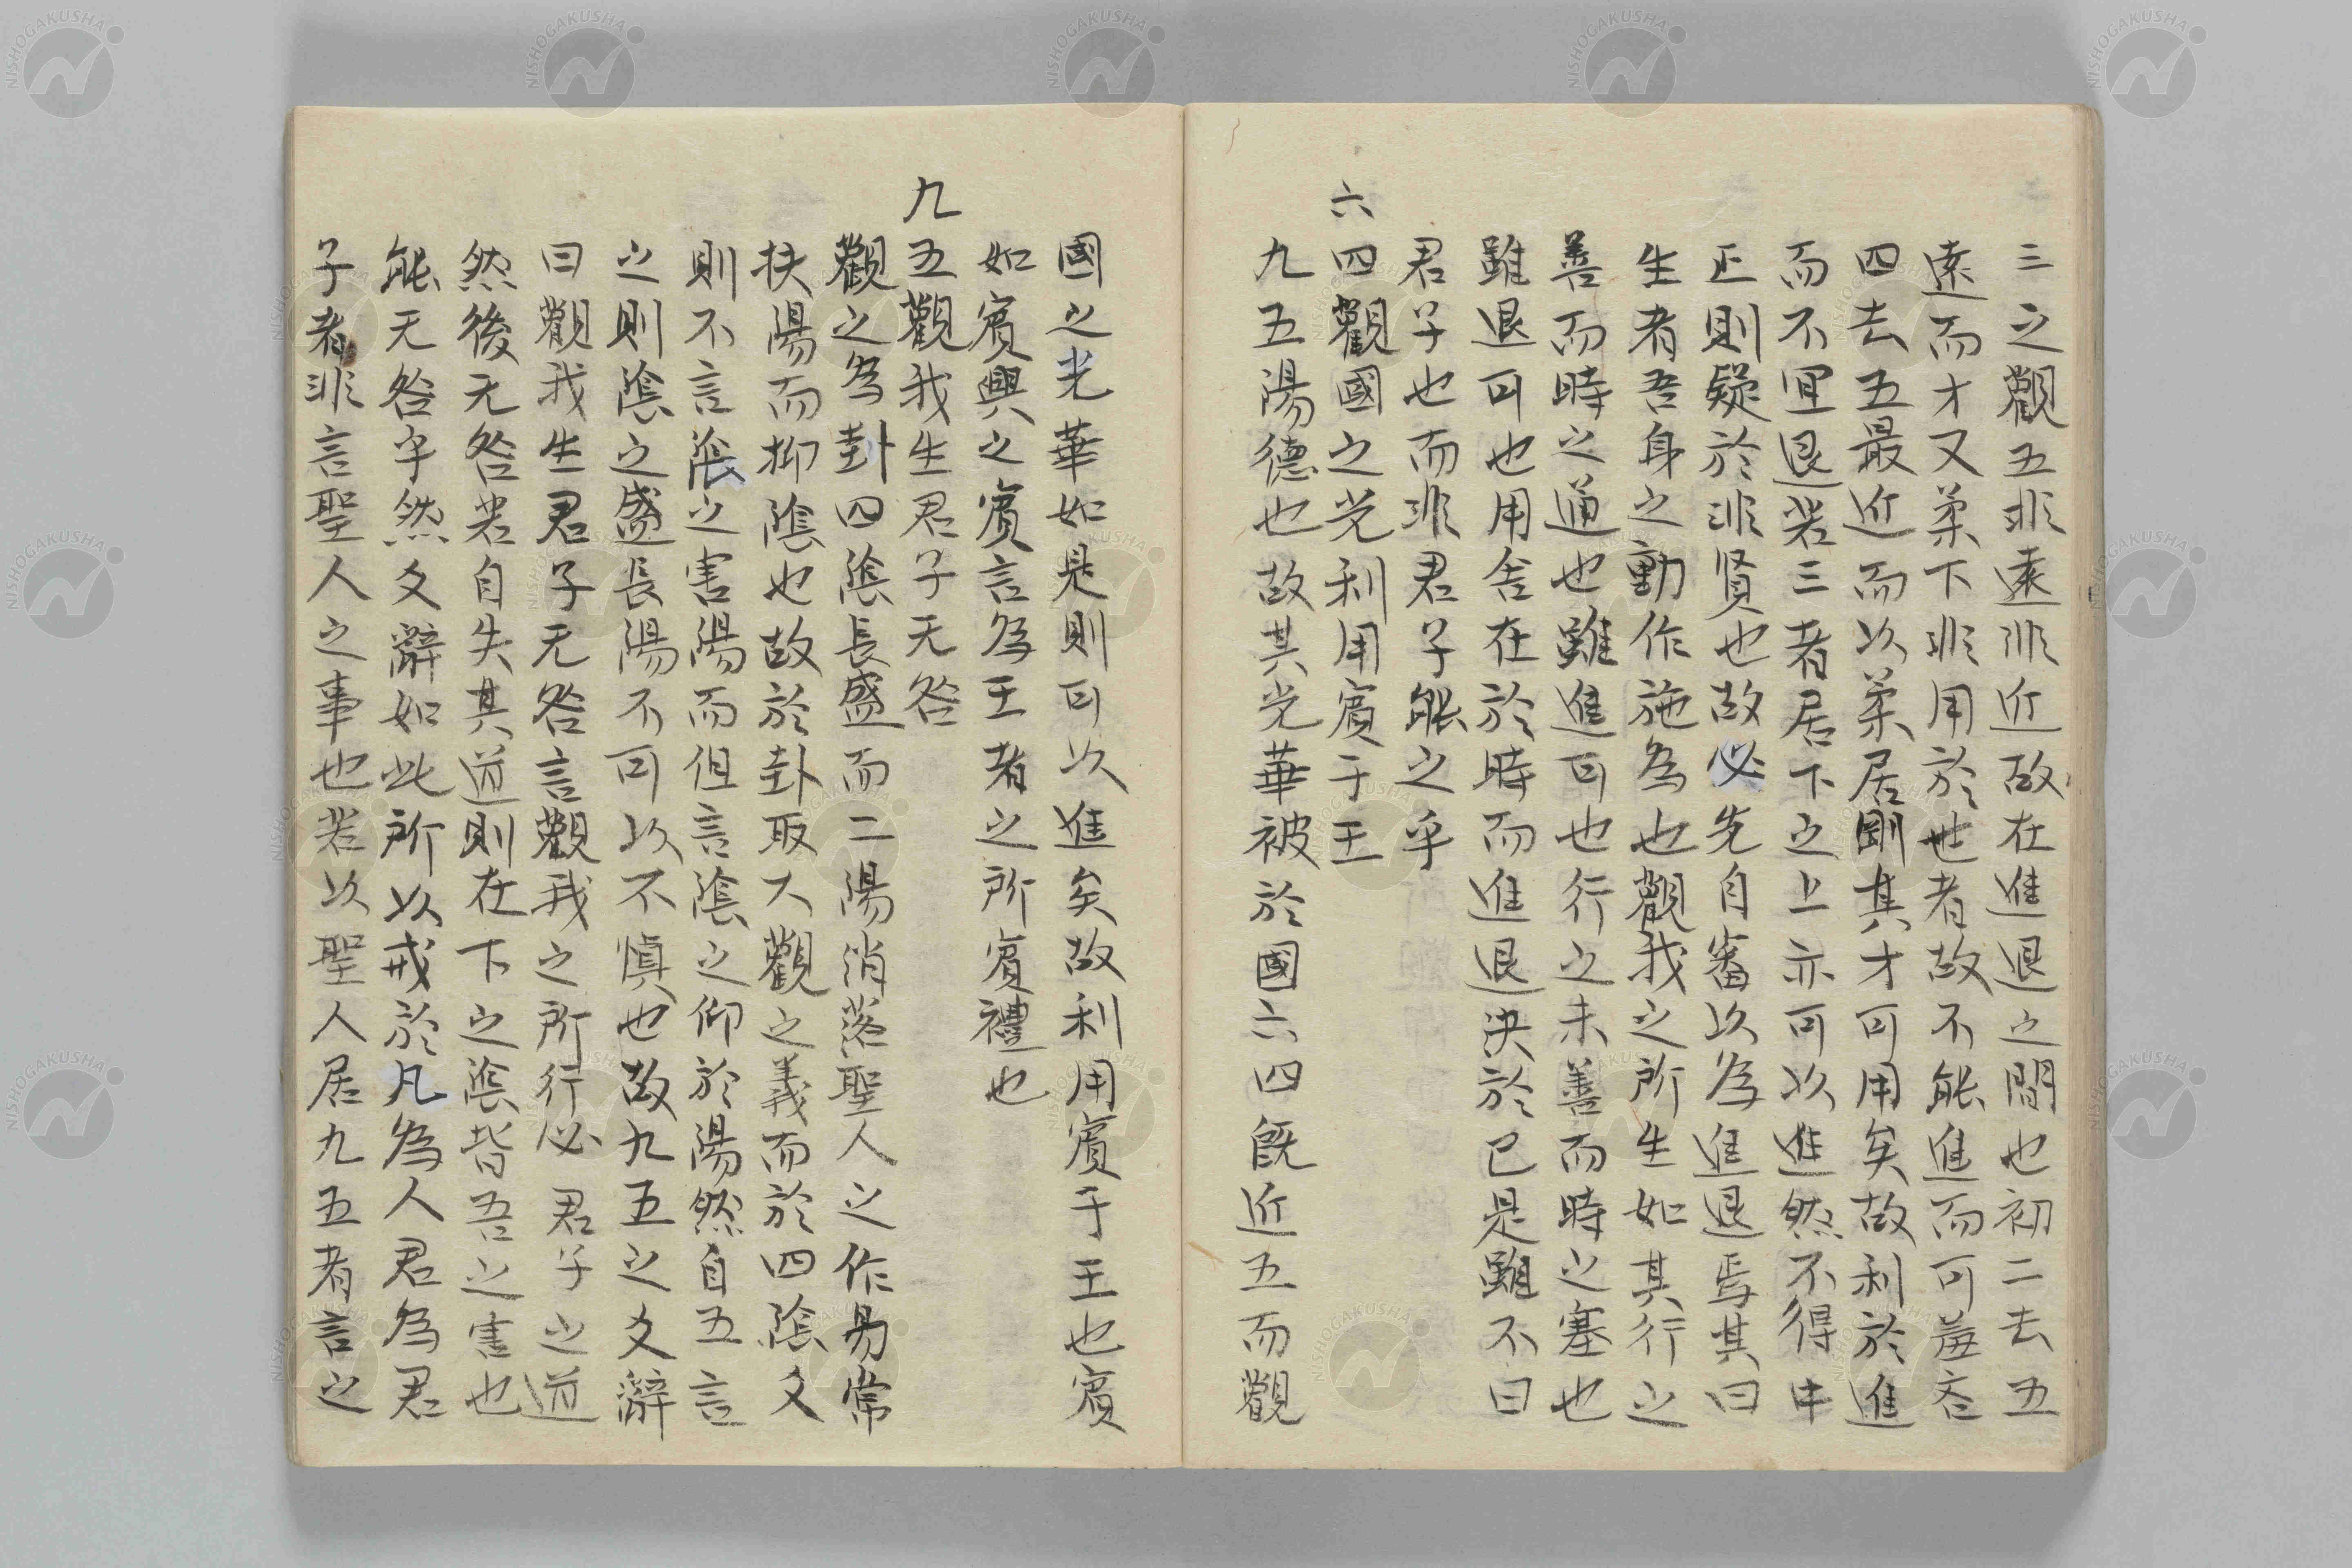 三之觀五非遠非近故在進退之間也初二去五
遠而才又柔下非用於世者故不能進而可羞吝
四去五最近而以柔居剛其才可用矣故利於進
而不宜退若三者居下之上亦可以進然不得中
正則疑於非賢也故必先自審以為進退焉其曰
生者吾身之動作施為也觀我之所生如其行之
善而時之通也雖進可也行之未善而時之塞也
雖退可也用舍在於時而進退決於已是雖不曰
君子也而非君子能之乎
六四觀國之光利用賓于王
九五陽德也故其光華被於國六四既近五而觀
國之光華如是則可以進矣故利用賓于王也賓
如賓興之賓言為王者之所賓禮也
九五觀我生君子无咎
觀之為卦四陰長盛而二陽消落聖人之作易常
扶陽而抑陰也故於卦取大觀之義而於四陰爻
則不言陰之害陽而但言陰之仰於陽然自五言
之則陰之盛長陽不可以不慎也故九五之爻辭
曰觀我生君子无咎言觀我之所行必君子之道
然後无咎若自失其道則在下之陰皆吾之害也
能无咎乎然爻辭如此所以戒於凡為人君為君
子者非言聖人之事也若以聖人居九五者言之
NISHOGAKUSHA